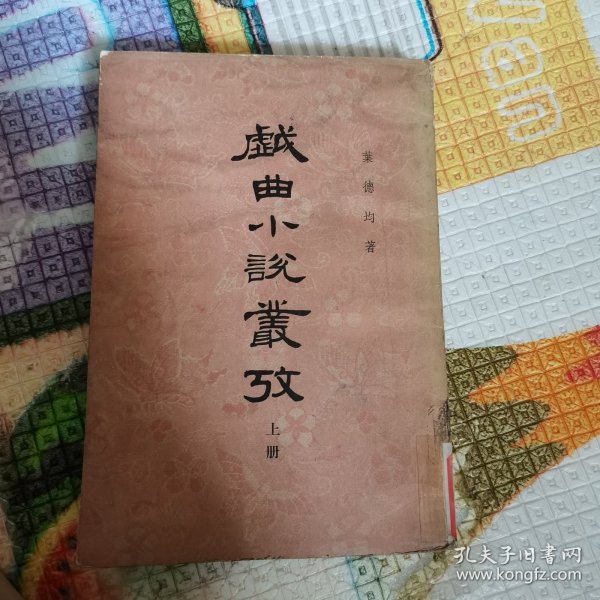 戯曲小說叢攷
上册
葉德均著
孔夫子旧书网
www.kongfz.com